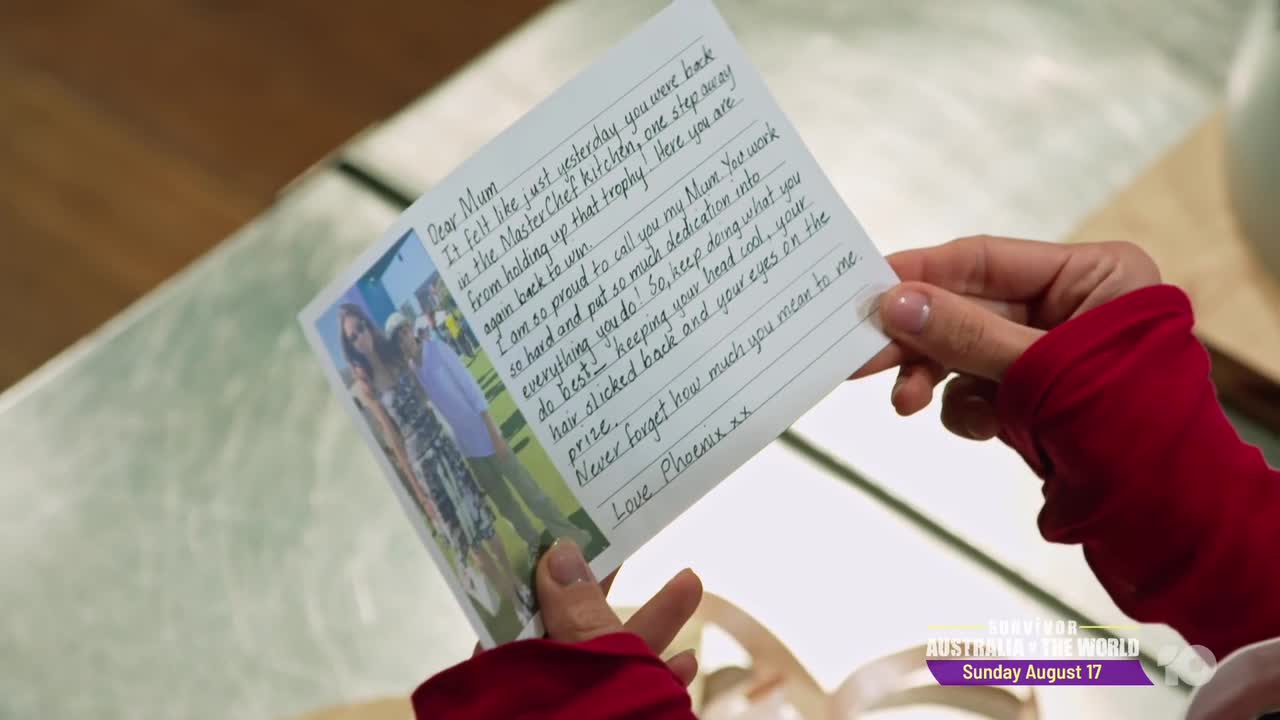 Dear Mum
It felt like just yesterday you were back
in the MasterChef kitchen, one step away
from holding up that trophy! Here you are
again back to win.
I am so proud to call you my Mum. You work
so hard and put so much dedication into
everything you do! So, keep doing what you
do best_ keeping your head cool, your
hair slicked back and your eyes on the
prize.
Never forget how much you mean to me.
Love Phoenix xx
SURVIVOR
AUSTRALIA V THE WORLD
Sunday August 17
10